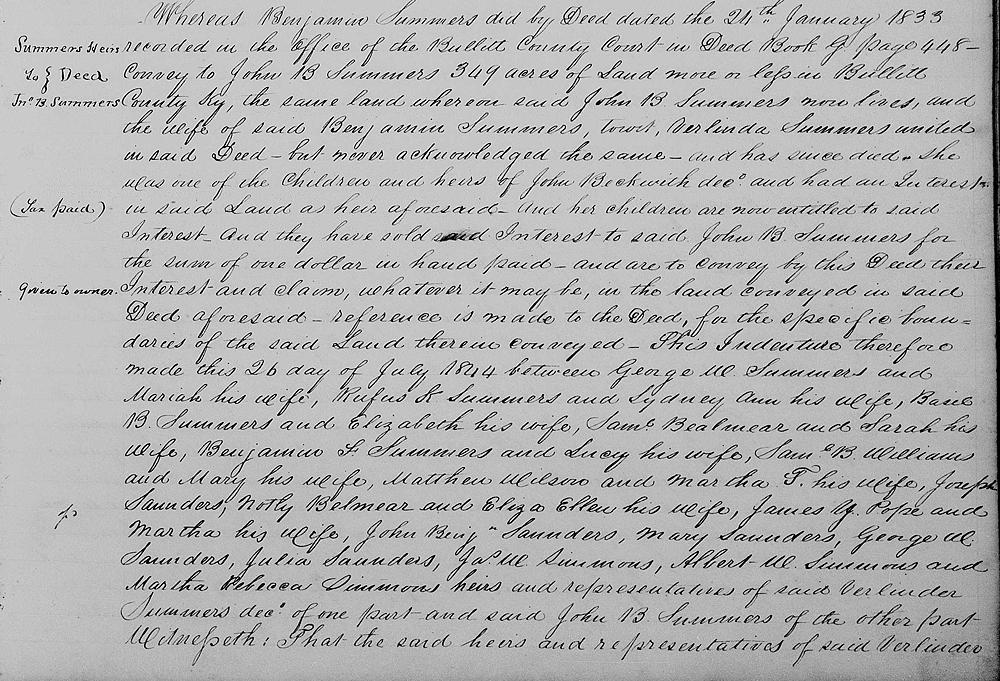 Whereas Benjamin Summers did by Deed dated the 24th January 1833
Summers Heirs
to } Deed
Jno B. Summers
recorded in the Office of the Bullitt County Court in Deed Book G page 448-
Convey to John B Summers 349 acres of Land more or less in Bullitt
County Ky, the same land whereon said John B. Summers now lives, and
the wife of said Benjamin Summers, towit, Verlinda Summers united
in said Deed - but never acknowledged the same - and has since died. She
was one of the Children and heirs of John Beckwith decd and had an Interest
(Tax paid)
in said Land as heir aforesaid - And her children are now entitled to said
Interest - And they have sold said Interest to said John B. Summers for
the sum of one dollar in hand paid - and are to convey by this Deed their
Given to owner.
Interest and claim, whatever it may be, in the land conveyed in said
Deed aforesaid - reference is made to the Deed, for the specific boun=
daries of the said Land therein conveyed - This Indenture therefore
made this 26 day of July 1844 between George W. Summers and
Mariah his wife, Rufus K Summers and Sydney Ann his wife, Basil
B. Summers and Elizabeth his wife, Saml Bealmear and Sarah his
wife, Benjamin F Summers and Lucy his wife, Saml B. Williams
and Mary his wife, Matthew Wilson and Martha F. his wife, Joseph
Saunders, Notly Belmear and Eliza Ellen his wife, James Y. Pope and
Martha his wife, John Benjn Saunders, Mary Saunders, George W.
Saunders, Julia Saunders, Jas W Simmons, Albert W. Simmons and
Martha Rebecca Simmons heirs and representatives of said Verlinder
Summers decd of one part and said John B. Summers of the other part
Witnesseth: That the said heirs and representatives of said Verlinder